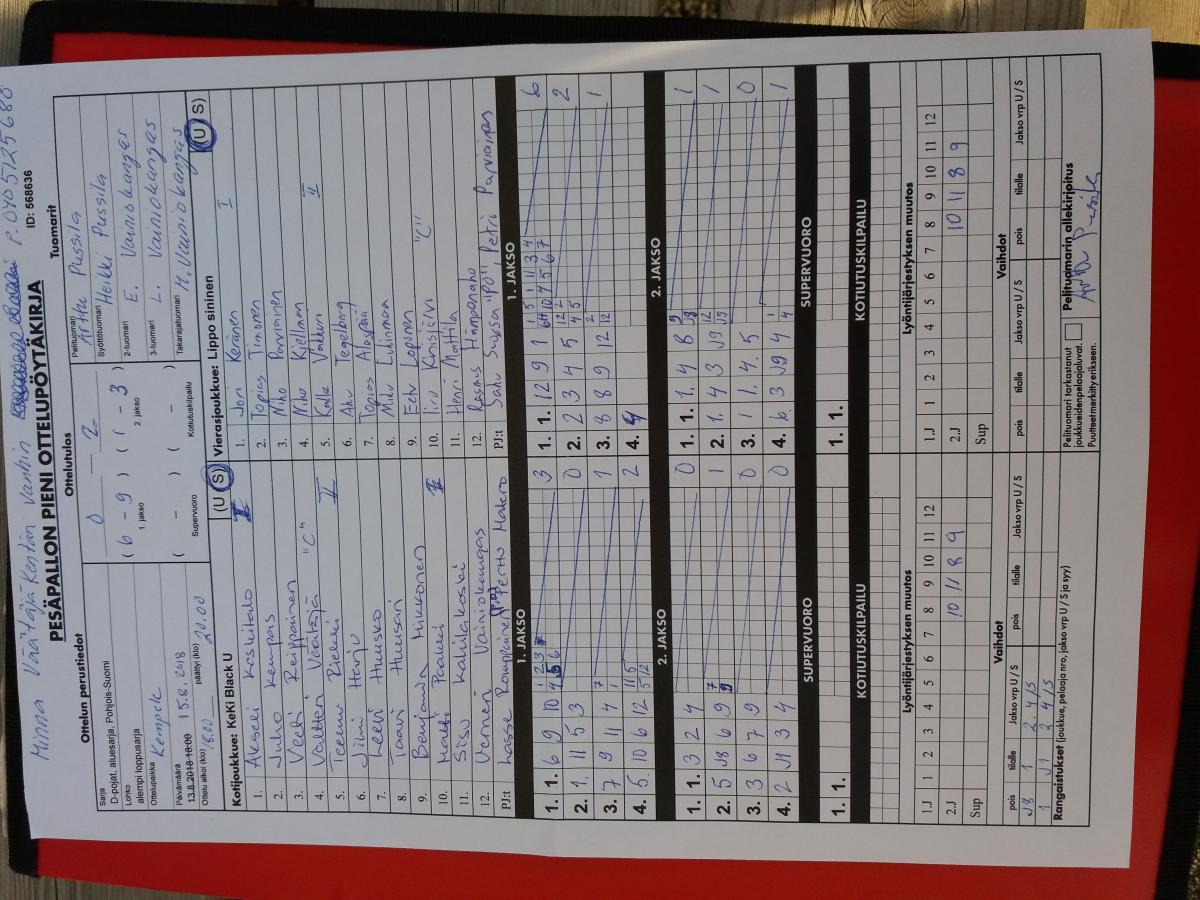 Minna Väätäjä Kentän Vanhin P. 0405125680
PESÄPALLON PIENI OTTELUPÖYTÄKIRJA
ID: 568636
Ottelun perustiedot
Sarja
D-pojat, aluesarja, Pohjois-Suomi
Lohko
alempi loppusarja
Ottelupaikka
Kempele
Päivämäärä
13.8.2018 18:00 15.8.2018
Ottelu alkoi (klo) 18.00 päättyi (klo) 20.00
Ottelutulos
0 2
( 6 - 9 ) ( 1 - 3 )
1. jakso 2. jakso
( - ) ( - )
Supervuoro Kotiutuskilpailu
Tuomarit
Pelituomari
Arttu Pussila
Syöttötuomari
Heikki Pussila
2-tuomari
E. Vainiokangas
3-tuomari
L. Vainiokangas
Takarajatuomari
M. Vainiokangas
Kotijoukkue: KeKi Black U (U S)
1. Akseli Koskitalo II
2. Juho Kempas
3. Veeti Reippainen
4. Valtteri Väätäjä "C"
5. Teemu Piekki II
6. Jimi Harju
7. Leevi Huusko
8. Taavi Huusari
9. Benjamin Mikkonen
10. Matti Paakki II
11. Sisu Kahilakoski
12. Verneri Vainiokangas
PJ:t Lasse Romppainen Perttu Makro
Vierasjoukkue: Lippo sininen (U S)
1. Joni Keränen I
2. Topias Timonen
3. Niko Parviainen
4. Niko Kjellman
5. Kalle Vakkuri II
6. Ahu Tegelberg
7. Topias Alapää
8. Miko Luhinmaa
9. Eetu Loponen
10. Iiro Kinisjärvi "C"
11. Henri Mattila
12. Rasmus Hämpänaho
PJ:t Saku Suksa "PO", Petri Parviainen
1. JAKSO
1. 1. 6 9 10 3
2. 1. 11 5 3 0
3. 7 9 11 4 1
4. 5. 10 6 12 2
2. JAKSO
1. 1. 3 2 4 0
2. 5 J8 6 9 1
3. 3 6 7 9 0
4. 2 J1 3 4 0
SUPERVUORO
1. 1.
KOTIUTUSKILPAILU
1. JAKSO
1. 1. 12 9 1 6
2. 2 3 4 5 2
3. 8 8 9 12 1
4.
2. JAKSO
1. 1. 1. 4 8 1
2. 1. 4 3 J9 1
3. 1 1. 4. 5 0
4. 6. 3 J9 4 1
SUPERVUORO
1. 1.
KOTIUTUSKILPAILU
Lyöntijärjestyksen muutos
1.J 1 2 3 4 5 6 7 8 9 10 11 12
2.J 10 11 8 9
Sup
Vaihdot
pois tilalle Jakso vrp U / S pois tilalle Jakso vrp U / S
J8 1 2. 4/5
1 J1 2 4/5
Rangaistukset (joukkue, pelaaja nro, jakso vrp U / S ja syy)
Lyöntijärjestyksen muutos
1.J 1 2 3 4 5 6 7 8 9 10 11 12
2.J 10 11 8 9
Sup
Vaihdot
pois tilalle Jakso vrp U / S pois tilalle Jakso vrp U / S
Pelituomari tarkastanut
joukkueidenpelaajaluvat.
Puutteetmerkittyerikseen.
Pelituomarin allekirjoitus